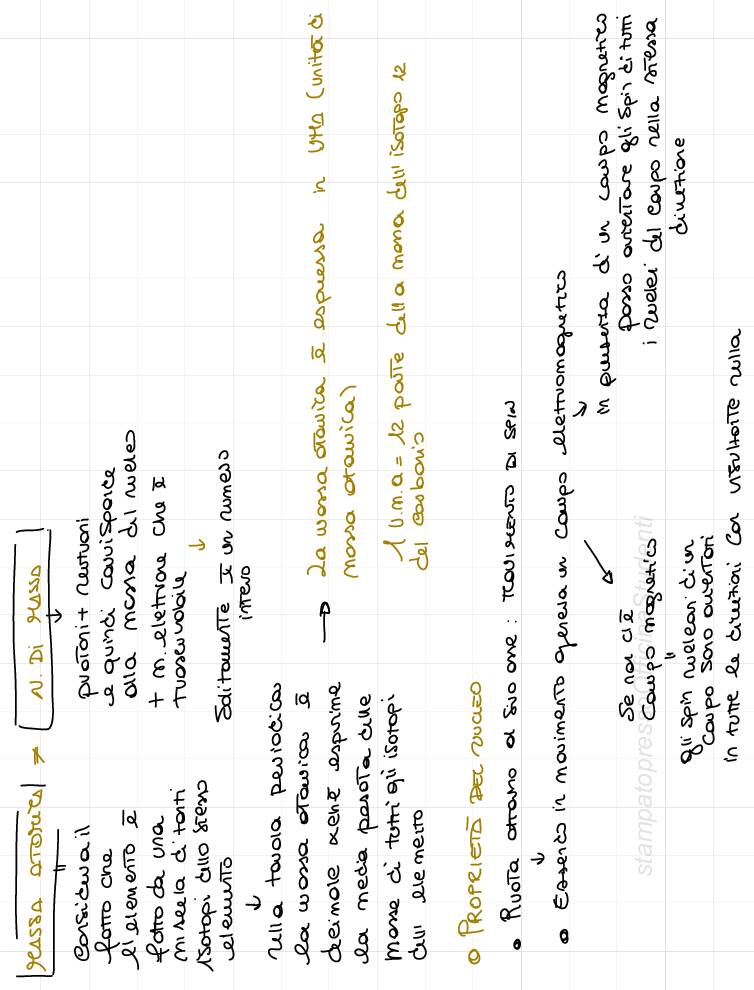 MASSA ATOMICA ≠ N. DI MASSA
considera il
fatto che
l'elemento è
fatto da una
miscela di tanti
isotopi dello stesso
elemento
↓
nella tavola periodica
la massa atomica è
decimale xchè esprime
la media pesata delle
masse di tutti gli isotopi
dell'elemento
protoni + neutroni
e quindi corrisponde
alla massa del nucleo
+ m. elettrone che è
trascurabile
↓
Solitamente è un numero
intero
→ La massa atomica è espressa in UMA (unità di
massa atomica)
1 U.m.a = 12 parte della massa dell'isotopo 12
del carbonio
• PROPRIETÀ DEL NUCLEO
• Ruota attorno al suo asse: MOVIMENTO DI SPIN
↓
• Essendo in movimento genera un campo elettromagnetico
Se non c'è
campo magnetico
"
gli spin nucleari di un
corpo sono orientati
in tutte le direzioni con risultante nulla
in presenza di un campo magnetico
posso orientare gli spin di tutti
i nuclei del corpo nella stessa
direzione